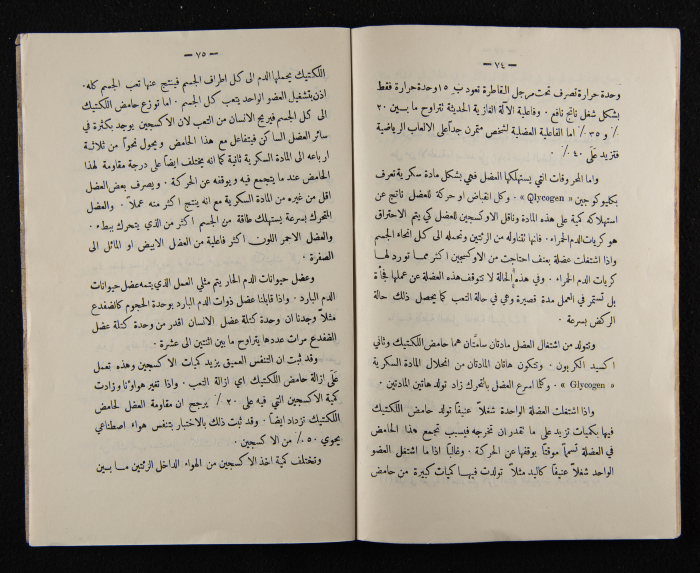 — ٧٤ —
وحدة حرارة تصرف تحت مرجل القاطرة تعود بـ ١٥ وحدة حرارة فقط
بشكل شغل ناتج نافع . وفاعلية الآلة الغازية الحديثة تتراوح ما بين ٢٠
٪ و ٣٥ ٪ اما الفاعلية العضلية لشخص متمرن جداً على الالعاب الرياضية
فتزيد على ٤٠ ٪
واما المحروقات التي يستهلكها العضل فهي بشكل مادة سكرية تعرف
بكليوكوجين « Qlycogen » . وكل انقباض او حركة للعضل ناتج عن
استهلاكه كمية على هذه المادة وناقل الاوكسجين للعضل كي يتم الاحتراق
هو كريات الدم الحمراء . فانها تتناوله من الرئتين وتحمله الى كل انحاء الجسم
واذا اشتغلت عضلة بعنف احتاجت من الاوكسجين اكثر مما تورد لها
كريات الدم الحمراء . وفي هذه الحالة لا تتوقف هذه العضلة عن عملها فجأة
بل تستمر في العمل مدة قصيرة وهي في حالة التعب كما يحصل ذلك حالة
الركض بسرعة .
ويتولد من اشتغال العضل مادتان سامتان هما حامض اللكتيك وثاني
اكسيد الكربون . وتتكون هاتان المادتان من انحلال المادة السكرية
« Glycogen » . وكلما اسرع العضل بالتحرك زاد تولد هاتين المادتين .
واذا اشتغلت العضلة الواحدة شغلاً عنيفاً تولد حامض اللكتيك
فيها بكميات تزيد على ما تقدر ان تخرجه فيسبب تجمع هذا الحامض
في العضلة تسمماً موقتاً يوقفها عن الحركة . وغالباً اذا ما اشتغل العضو
الواحد شغلاً عنيفاً كاليد مثلاً تولدت فيها كميات كبيرة من حامض
— ٧٥ —
اللكتيك يحملها الدم الى كل اطراف الجسم فينتج عنها تعب الجسم كله.
اذن بتشغيل العضو الواحد يتعب كل الجسم . اما توزع حامض اللكتيك
الى كل الجسم فيريح الانسان من التعب لان الاكسجين يوجد بكثرة في
سائر العضل الساكن فيتفاعل مع هذا الحامض ويحول نحواً من ثلاثة
ارباعه الى المادة السكرية ثانية كما انه يختلف ايضاً على درجة مقاومة لهذا
الحامض عند ما يتجمع فيه ويوقفه عن الحركة . ويصرف بعض العضل
اقل من غيره من المادة السكرية مع انه ينتج اكثر منه عملاً . والعضل
المتحرك بسرعة يستهلك طاقة من الجسم اكثر من الذي يتحرك ببطء .
والعضل الاحمر اللون اكثر فاعلية من العضل الابيض او المائل الى
الصفرة .
وعضل حيوانات الدم الحار يتم مثلي العمل الذي يتمه عضل حيوانات
الدم البارد . واذا قابلنا عضل ذوات الدم البارد بوحدة الحجوم كالضفدع
مثلاً وجدنا ان وحدة كتلة عضل الانسان اقدر من وحدة كتلة عضل
الضفدع مرات عددها يتراوح ما بين الثنتين الى عشرة .
وقد ثبت ان التنفس العميق يزيد كميات الاكسجين وهذه تعمل
على ازالة حامض اللكتيك اي ازالة التعب . واذا تغير هواؤنا وزادت
كمية الاكسجين التي فيه على ٢٠ ٪ يرجح ان مقاومة العضل لحامض
اللكتيك تزداد ايضاً . وقد ثبت ذلك بالاختبار بتنفس هواء اصطناعي
يحوي ٥٠ ٪ من الاكسجين .
وتختلف كمية اخذ الاكسجين من الهواء الداخل الرئتين ما بين